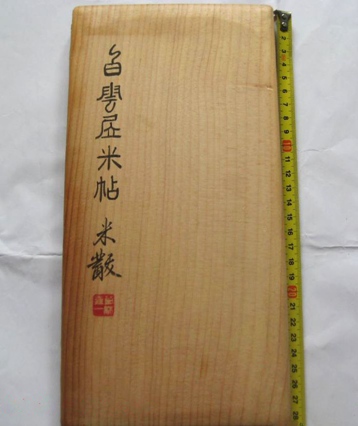 白雲居米帖
米黻
2
3
4
5
6
7
8
9
10
11
12
13
14
15
16
17
18
19
20
21
22
23
24
25
26
27
28